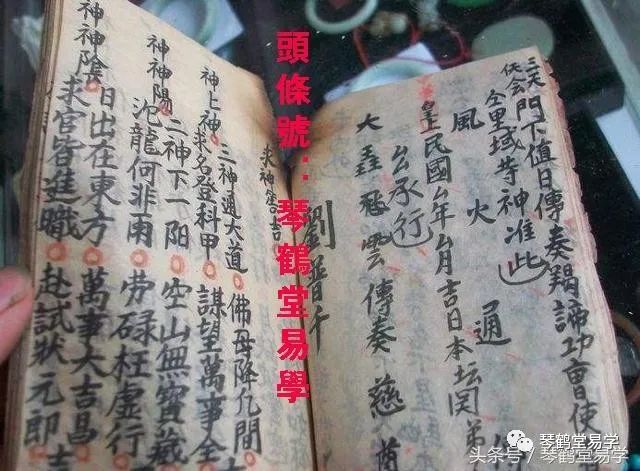 三天門下值日傳奏羯諦功曹使
仝里域等神准此
風火通
皇上民國年月吉日本坛関弟
承行
大飛雲傳奏慈
劉晋千
頭條號：琴鶴堂易學
神上神
三神通大道 佛母降凡間
求名登科甲 謀望萬事全
神神陽
二神下一陽 空山無寶藏
沈龍何非雨 勞碌枉虛行
神神陰
日出在東方 萬事大吉昌
求官皆進職 赴試狀元郎 吉
琴鹤堂易学
头条号 / 琴鹤堂易学